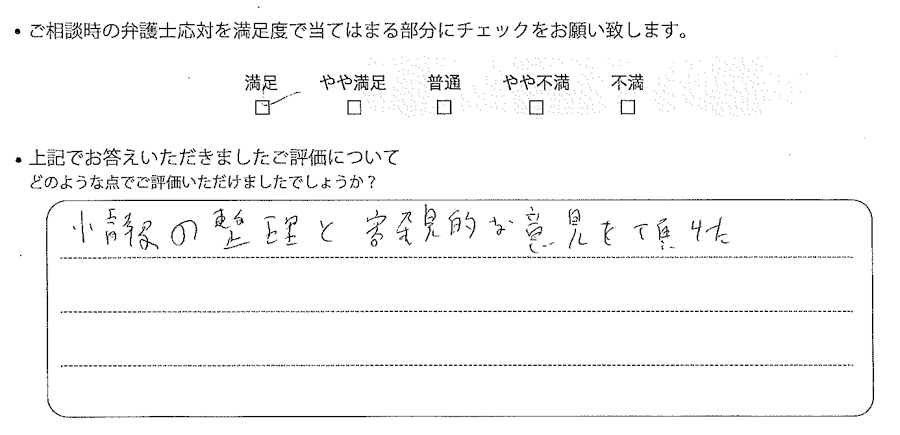 ・ご相談時の弁護士応対を満足度で当てはまる部分にチェックをお願い致します。
満足 やや満足 普通 やや不満 不満
□ □ □ □ □
・上記でお答えいただきましたご評価について
どのような点でご評価いただけましたでしょうか？
情報の整理と客観的な意見を頂けた